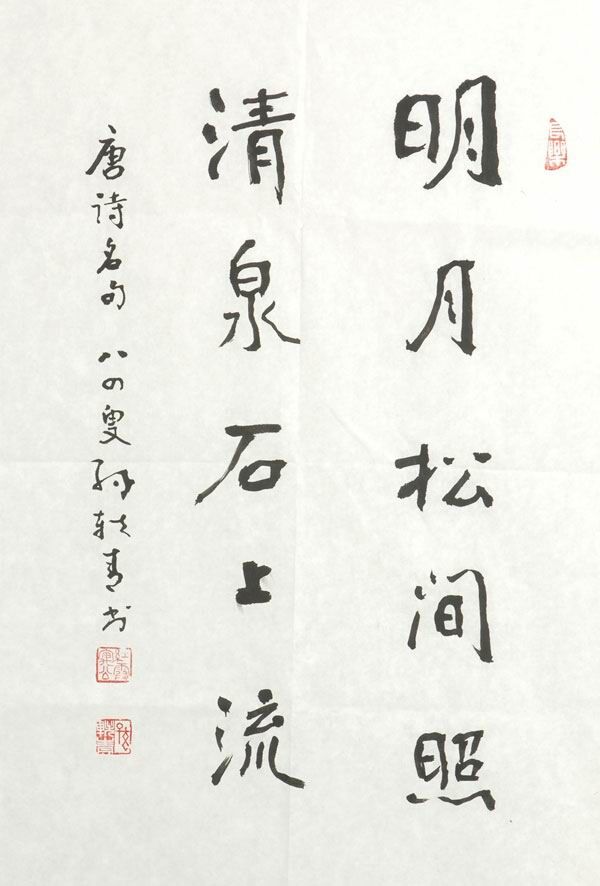 明月松间照
清泉石上流
唐詩名句 八四叟 孙轶青书